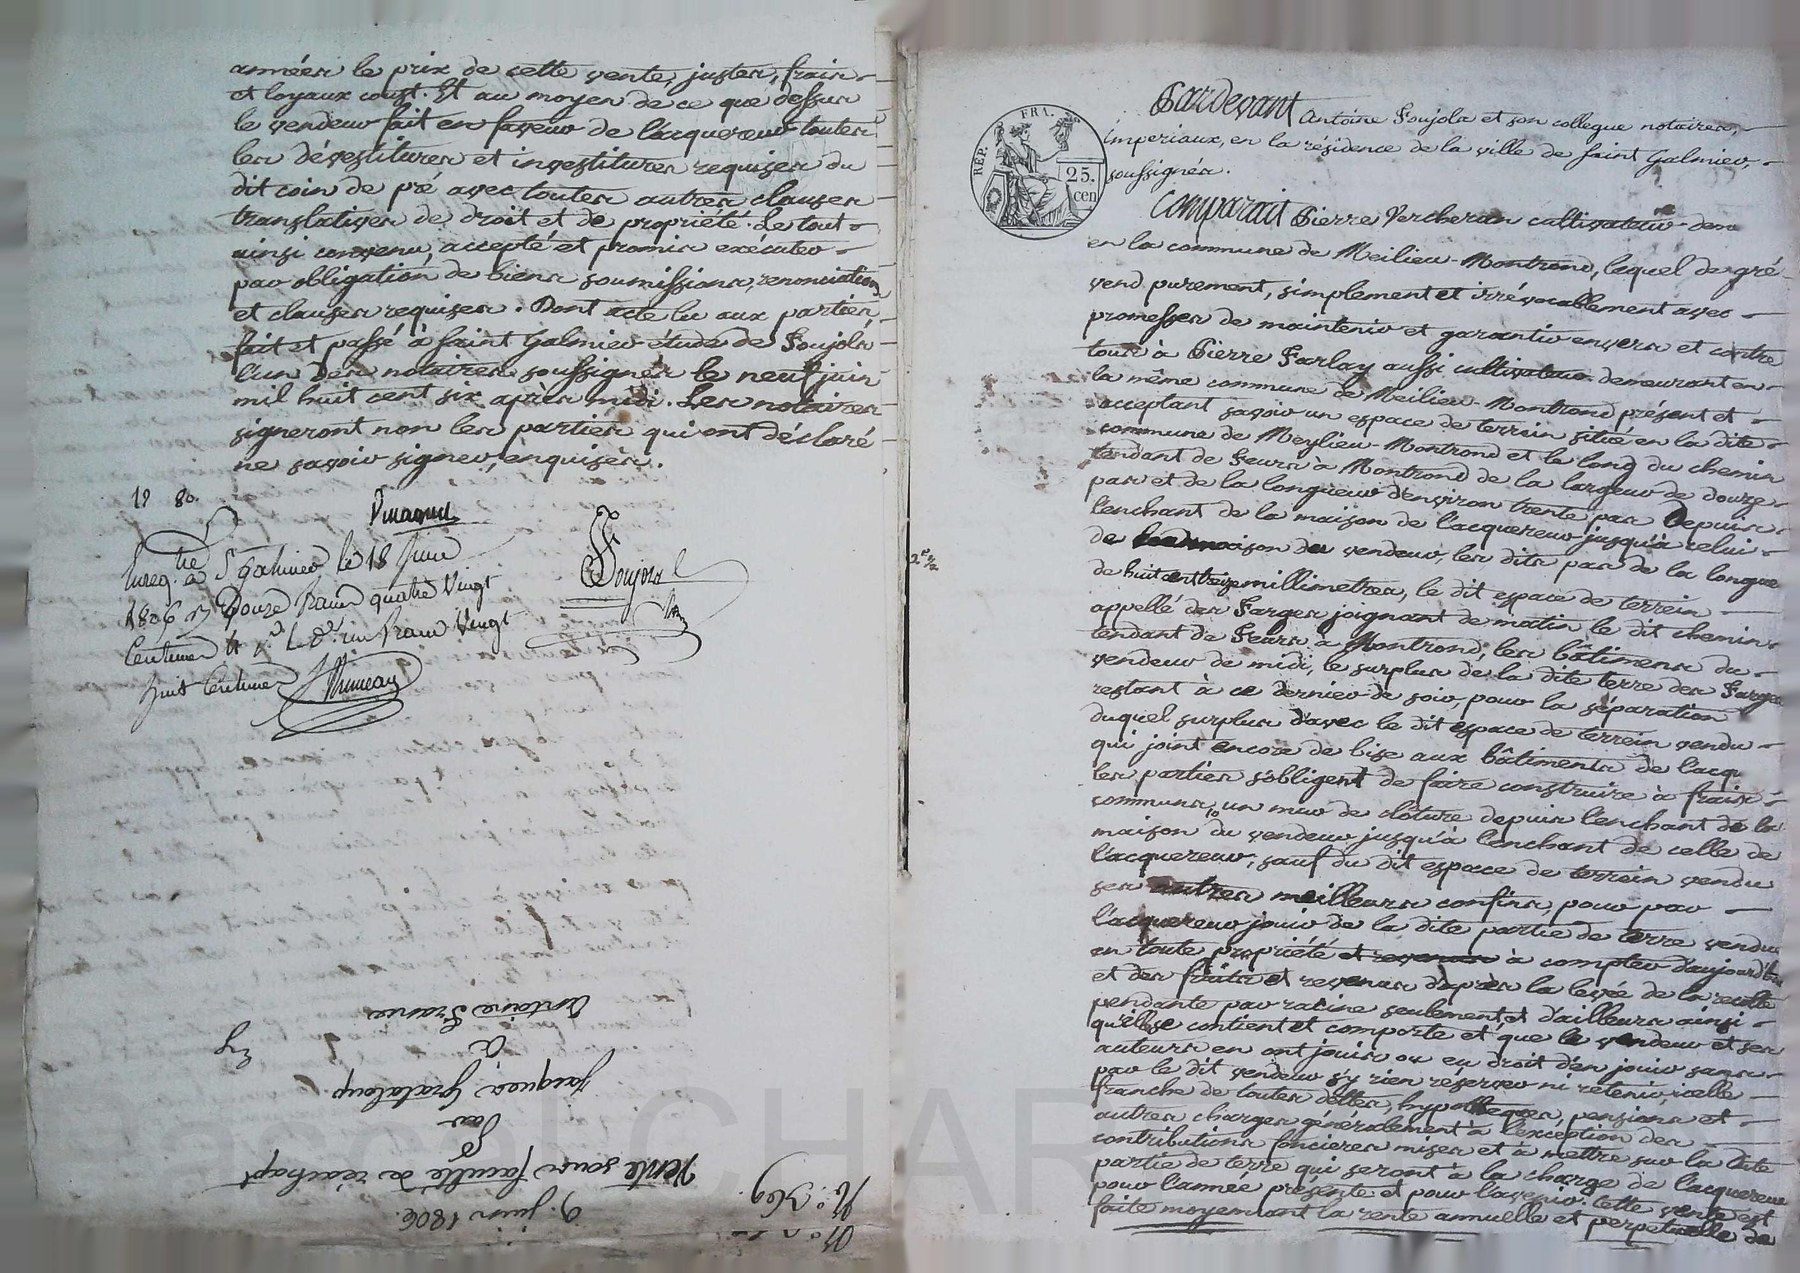 années le prix de cette vente, justes, frais
et loyaux coust. Et au moyen de ce que dessus
le vendeur fait en faveur de l'acquereur toutes
les dévestitures et investitures requises du
dit coin de pré avec toutes autres clauses
translatives de droit et de propriété. Le tout
ainsi convenu, accepté et promis exécuter
par obligation de biens soumissions, renonciations
et clauses requises. Dont acte lu aux parties,
fait et passé à Saint Galmier étude de Soujola
l'un des notaires soussignés le neuf juin
mil huit cent six après midi. Les notaires
signeront non les parties qui ont déclaré
ne savoir signer, enquises.
12 80.
Soujola
Enreg. à St Galmier le 18 Juin
1806 Douze francs quatre Vingt
Centimes un franc Vingt
huit Centimes
Antoine France
à
Jacques Grataloup
par
Vente sous faculté de réachapt
9. juin 1806.
N.º 369.
Pardevant Antoine Soujola et son collegue notaires,
imperiaux, en la résidence de la ville de Saint Galmier,
soussignés.
REP. FRA.
25.
cen
Comparait Pierre Vercherin cultivateur dem
en la commune de Meilieu-Montrond, lequel de gré
vend purement, simplement et irrévocablement avec
promesses de maintenir et garantir envers et contre
tous à Pierre Farlay aussi cultivateur demeurant en
la même commune de Meilieu-Montrond présent et
acceptant savoir un espace de terrein situé en la dite
commune de Meylieu-Montrond et le long du chemin
tendant de Feurs à Montrond de la largeur de douze
pas et de la longueur d'environ trente pas depuis
l'enchant de la maison de l'acquereur jusqu'à celui
de maison du vendeur, les dits pas de la longue
de huit cent millimetres, le dit espace de terrein
appellé des Farges joignant de matin le dit chemin
tendant de Feurs à Montrond, les bâtimens du
vendeur de midi, le surplus de la dite terre des Farges
restant à ce dernier de soir, pour la séparation
duquel surplus d'avec le dit espace de terrein vendu
qui joint encore de bise aux bâtiments de l'acq
les parties s'obligent de faire construire à frais
communs, un mur de clôture depuis l'enchant de la
maison du vendeur jusqu'à l'enchant de celle de
l'acquereur, sauf du dit espace de terrein vendu
ses autres meilleurs confins, pour par
l'acquereur jouir de la dite partie de terre vendue
en toute propriété et revenus à compter d'aujourd'hui
et des fruits et revenus d'après la levée de la recolte
pendante par racine seulement et d'ailleurs ainsi
qu'elle se contient et comporte et que le vendeur et ses
auteurs en ont joui ou eu droit d'en jouir sans
par le dit vendeur s'y rien réserver ni retenir, icelle
franche de toutes dettes, hypotheques, pensions et
autres charges généralement à l'exception des
contributions foncieres mises et à mettre sur la dite
partie de terre qui seront à la charge de l'acquereur
pour l'année présente et pour l'avenir. Cette vente est
faite moyennant la rente annuelle et perpetuelle de